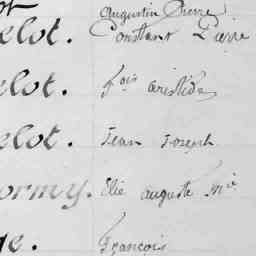 ot Augustin Pierre
elot. Constant Pierre
elot. f.ois aristide
elot. Jean Joseph
ormy. Elie auguste M.ie
ge. François